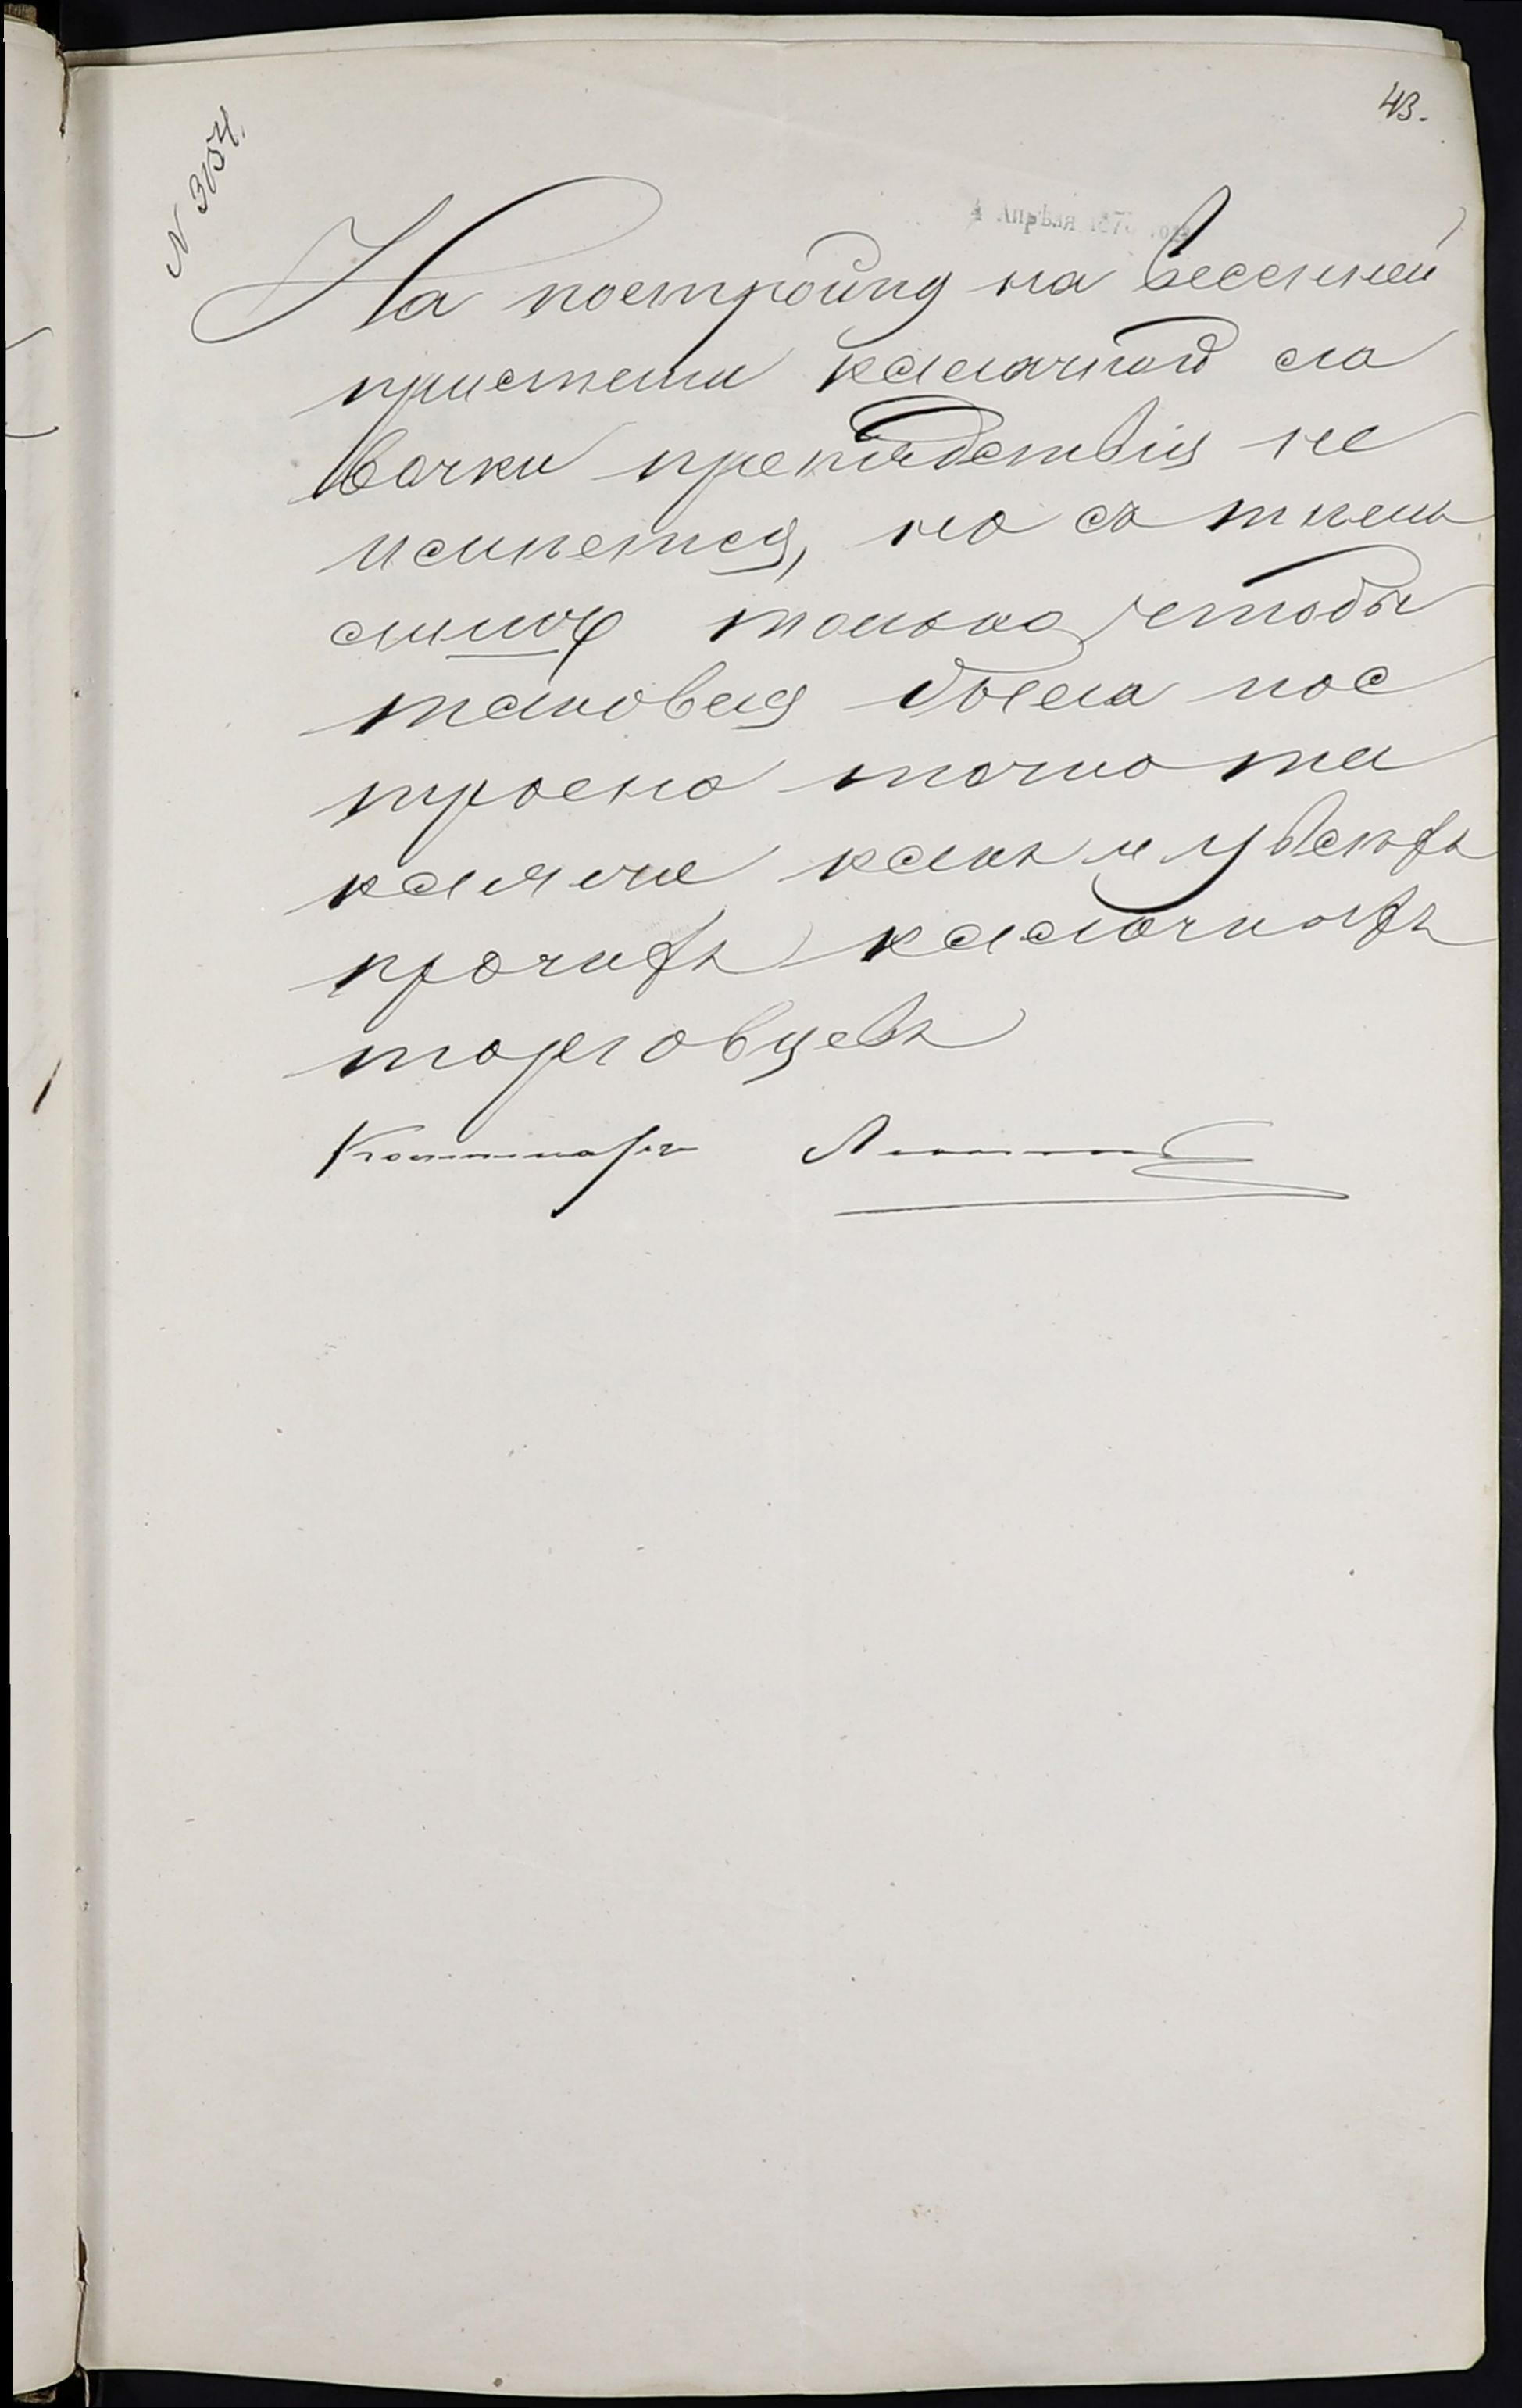 43.
N 3154.
4 Апрѣля 187 года
На постройку на весенней
пристани калачной ла
вочки препядствія не
имеется, но съ тѣмъ
только чтобы
таковая была пос
троена точно та
каяже какъ и у всѣхъ
прочихъ калачныхъ
торговцевъ